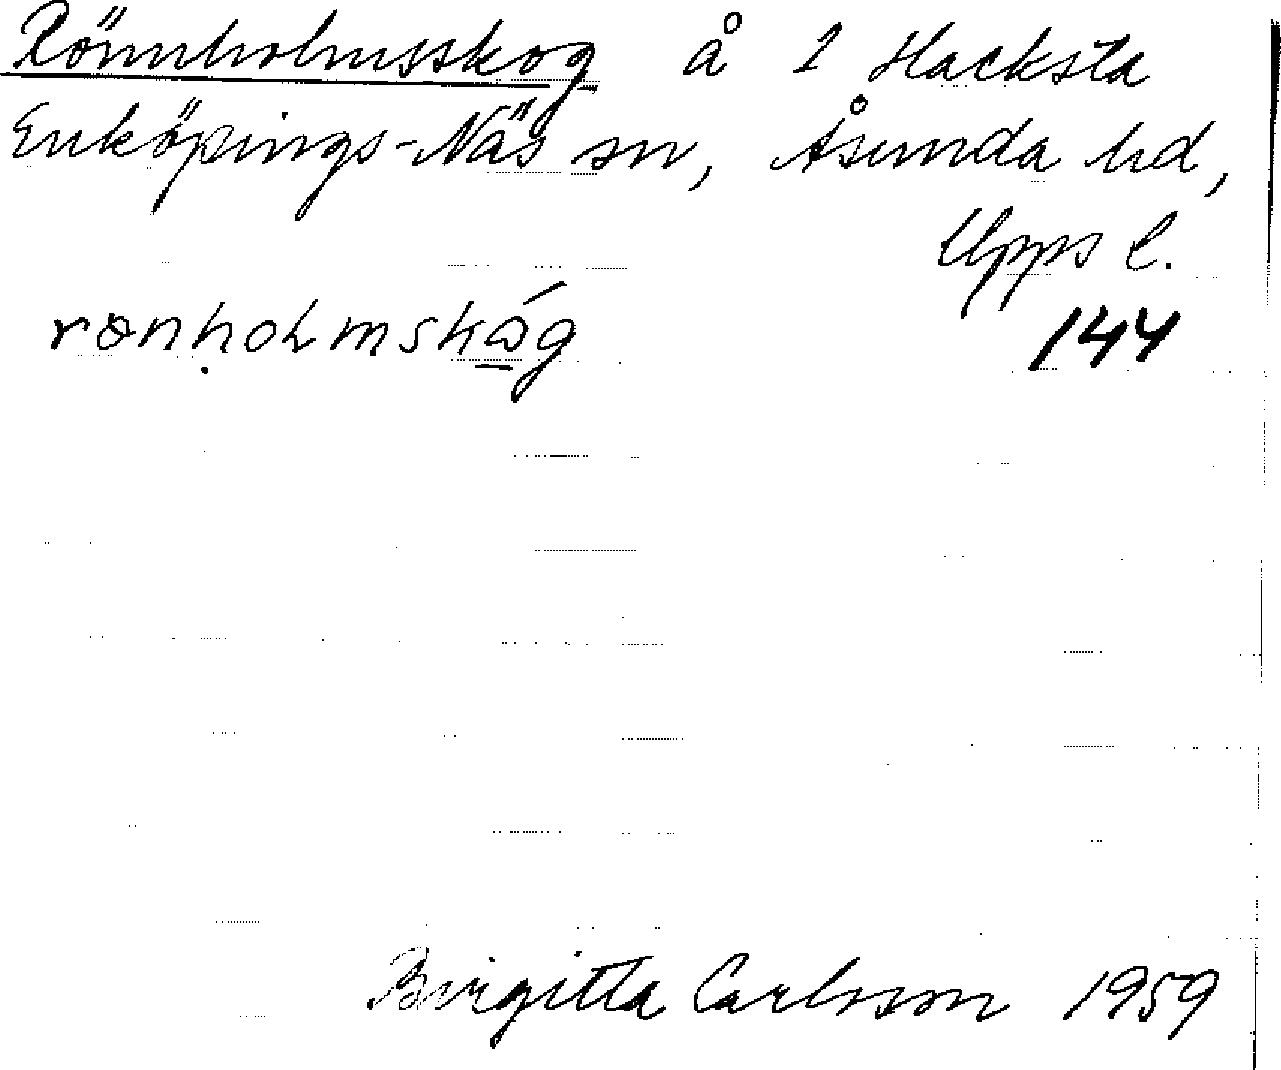 Rönnholmsskog å 1 Hacksta
Enköpings-Näs sn, Åsunda hd,
Upps l.
rɵnḥoʟmskɷ̠́g
144
Birgitta Carlsson 1959